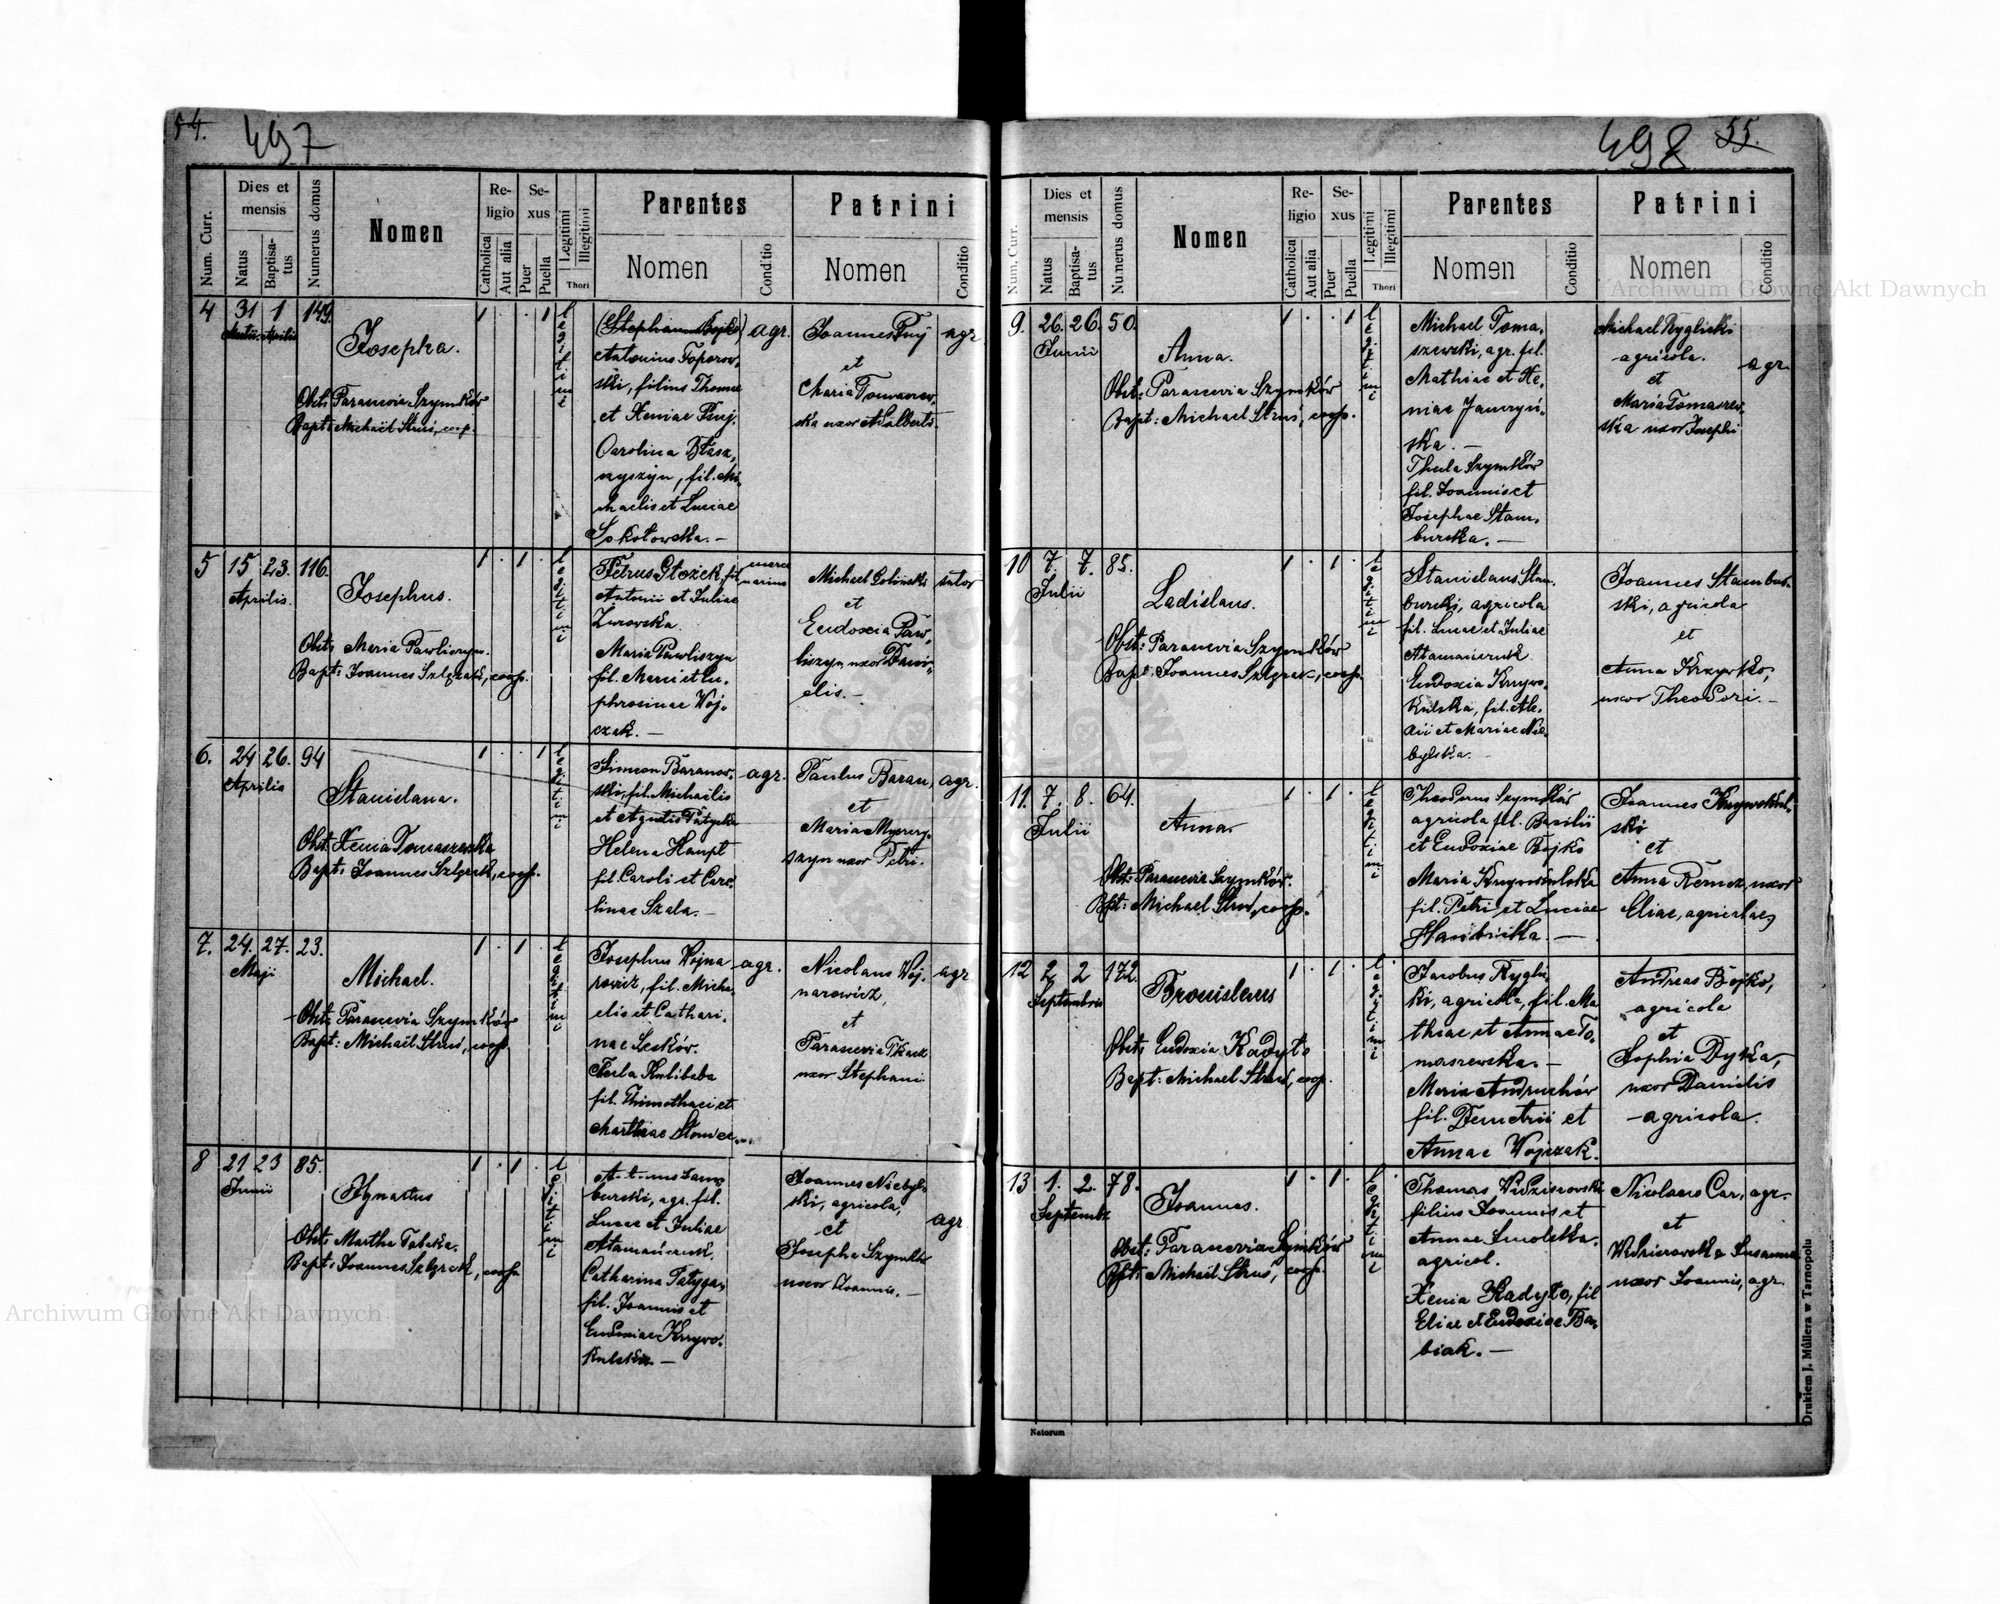 54.
497
Num. Curr.
Dies et mensis
Natus
Baptisatus
Numerus domus
Nomen
Religio
Catholica
Aut alia
Sexus
Puer
Puella
Legitimi
Illegitimi
Thori
Parentes
Nomen
Conditio
Patrini
Nomen
Conditio
4
31 1 149.
Martii Aprilis
Josepha.
Obst: Parascevia Szymków
Bapt: Michaël Struś, coop.
1 . . 1
legitimi
(Stephanus Bojko)
Antonius Toporow,
ski, filius Thomae
et Xeniae Pruj.
Carolina Błasz,
czyszyn, fil. Mi,
chaelis et Luciae
Sokołowska. —
agr.
Joannes
et
Maria
ska uxor Adalberti.
agr.
5
15 23. 116.
Aprilis.
Josephus.
Obst: Maria Pawliszyn.
Bapt: Joannes Szlgrak, coop.
1 . 1 .
legitimi
Petrus Głożek, fil.
Antonii et Juliae
Żurowska.
Maria Pawliszyn
fil. Marci et Eu,
phrosinae Woj,
czak. —
merce
narius
Michael
et
Eudoxia Paw,
liszyn, uxor Dani,
elis. —
sutor
6.
24 26. 94
Aprilis
Stanislava.
Obst. Xenia Tomaszewska
Bapt: Joannes Szlgrak, coop.
1 . . 1
legitimi
Simeon Baranow,
ski, fil. Michaëlis
et
Helena Haupt
fil. Caroli et Caro,
linae Szala. —
agr.
Paulus Baran,
et
Maria
szyn uxor Petri.
agr.
7.
24. 27. 23.
Maji
Michael.
Obst: Parascevia Szymków
Bapt: Michaël Struś, coop.
1 . 1 .
legitimi
Josephus Wojna
rowicz, fil. Micha,
elis et Cathari,
nae Leśków.
Thecla Kulibaba
fil. Thimothaei et
Marthae
agr.
Nicolaus Woj,
narowicz,
et
Parascevia Tkacz
uxor Stephani
agr
8
21 23 85.
Junii
Ignatius
Obst: Martha
Bapt: Joannes Szlgrak, coop.
1 . 1 .
legitimi
burski, agr. fil.
Lucae et Juliae
Atamańczuk.
Catharina Patyga,
fil. Joannis et
Eudoxiae Krzywo,
kulska. —
Joannes Niebyl,
ski, agricola,
et
Josepha Szymków
uxor Joannis. —
agr
498
55.
Num. Curr.
Dies et mensis
Natus
Baptisatus
Numerus domus
Nomen
Religio
Catholica
Aut alia
Sexus
Puer
Puella
Legitimi
Illegitimi
Thori
Parentes
Nomen
Conditio
Patrini
Nomen
Conditio
9.
26. 26. 50.
Junii
Anna.
Obst: Parascevia Szymków
Bapt: Michael Struś, coop.
1 . . 1
legitimi
Michael Toma,
szewski, agr. fil.
Mathiae et Xe,
niae
ska. —
Thecla Szymków
fil. Joannis et
Josephae Stam,
burska. —
Michael Ryglicki
agricola.
et
Maria Tomaszew,
ska uxor Josephi
agr
10
7. 7. 85.
Julii
Ladislaus.
Obst: Parascevia Szymków
Bapt: Joannes Szlgrak, coop.
1 . 1 .
legitimi
Stanislaus Stam,
burski, agricola
fil. Lucae et Juliae
Atamańczuk
Eudoxia Krzywo,
kulska, fil. Ale,
xii et Mariae Nie,
bylska.
Joannes Stambur,
ski, agricola
et
Anna Krzywko,
uxor Theodori. —
11.
7. 8. 64.
Julii
Anna
Obst: Parascevia Szymków.
Bpt: Michael Struś, coop.
1 . 1 .
legitimi
Theodorus Szymków
agricola fil. Basilii
et Eudoxiae Bojko
Maria Krzywokulska
fil. Petri et Luciae
—
Joannes Krzywokul,
ski
et
Anna Remez, uxor
Eliae, agricolae,
12
2 2 172.
Septembris
Bronislaus
Obst: Eudoxia Kadyło
Bapt: Michael Struś, coop.
1 . 1 .
legitimi
Jacobus Ryglic,
ki, agricola, fil. Ma
thiae et Annae To,
maszewska. —
Maria Andruchów
fil. Demetrii et
Annae Wojczak.
Andreas Bojko,
agricola
et
Sophia Dyka,
uxor Danielis
— agricola.
13
1. 2. 78.
Septembr.
Joannes.
Obst: Parascevia Szymków
Bpt: Michaël Struś, coop.
1 . 1 .
legitimi
Thomas Widzisrowski
filius Joannis et
Annae Smolska,
agricol.
Xenia Kadyło, fil
Eliae et Eudoxiae Ba,
biak. —
Nicolaus Car, agr.
et
Susanna
uxor Joannis, agr.
Natorum
Drukiem J. Müllera w Tarnopolu
Archiwum Główne Akt Dawnych
Archiwum Główne Akt Dawnych